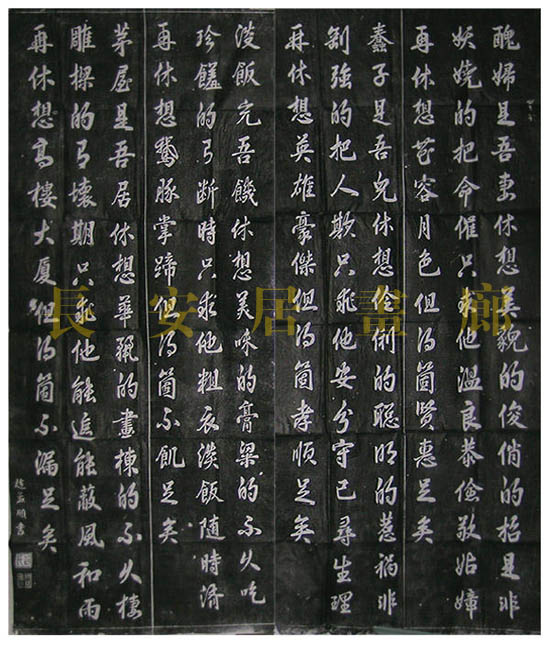 醜婦是吾妻休想美貌的俊俏的招是非
妖嬈的把命催只求他溫良恭儉敬姑嫜
再休想花容月色但得箇賢惠足矣
蠢子是吾兒休想伶俐的聰明的惹禍非
剛強的把人欺只求他安分守己尋生理
再休想英雄豪傑但得箇孝順足矣
淡飯充吾饑休想美味的膏粱的不久吃
珍饈的有斷時只求他粗衣淡飯隨時濟
再休想鵝豚掌蹄但得箇不飢足矣
茅屋是吾居休想華麗的畫棟的不久棲
雕樑的有壞期只求他能遮能蔽風和雨
再休想高樓大厦但得箇不漏足矣
趙孟頫書
長安居畫廊